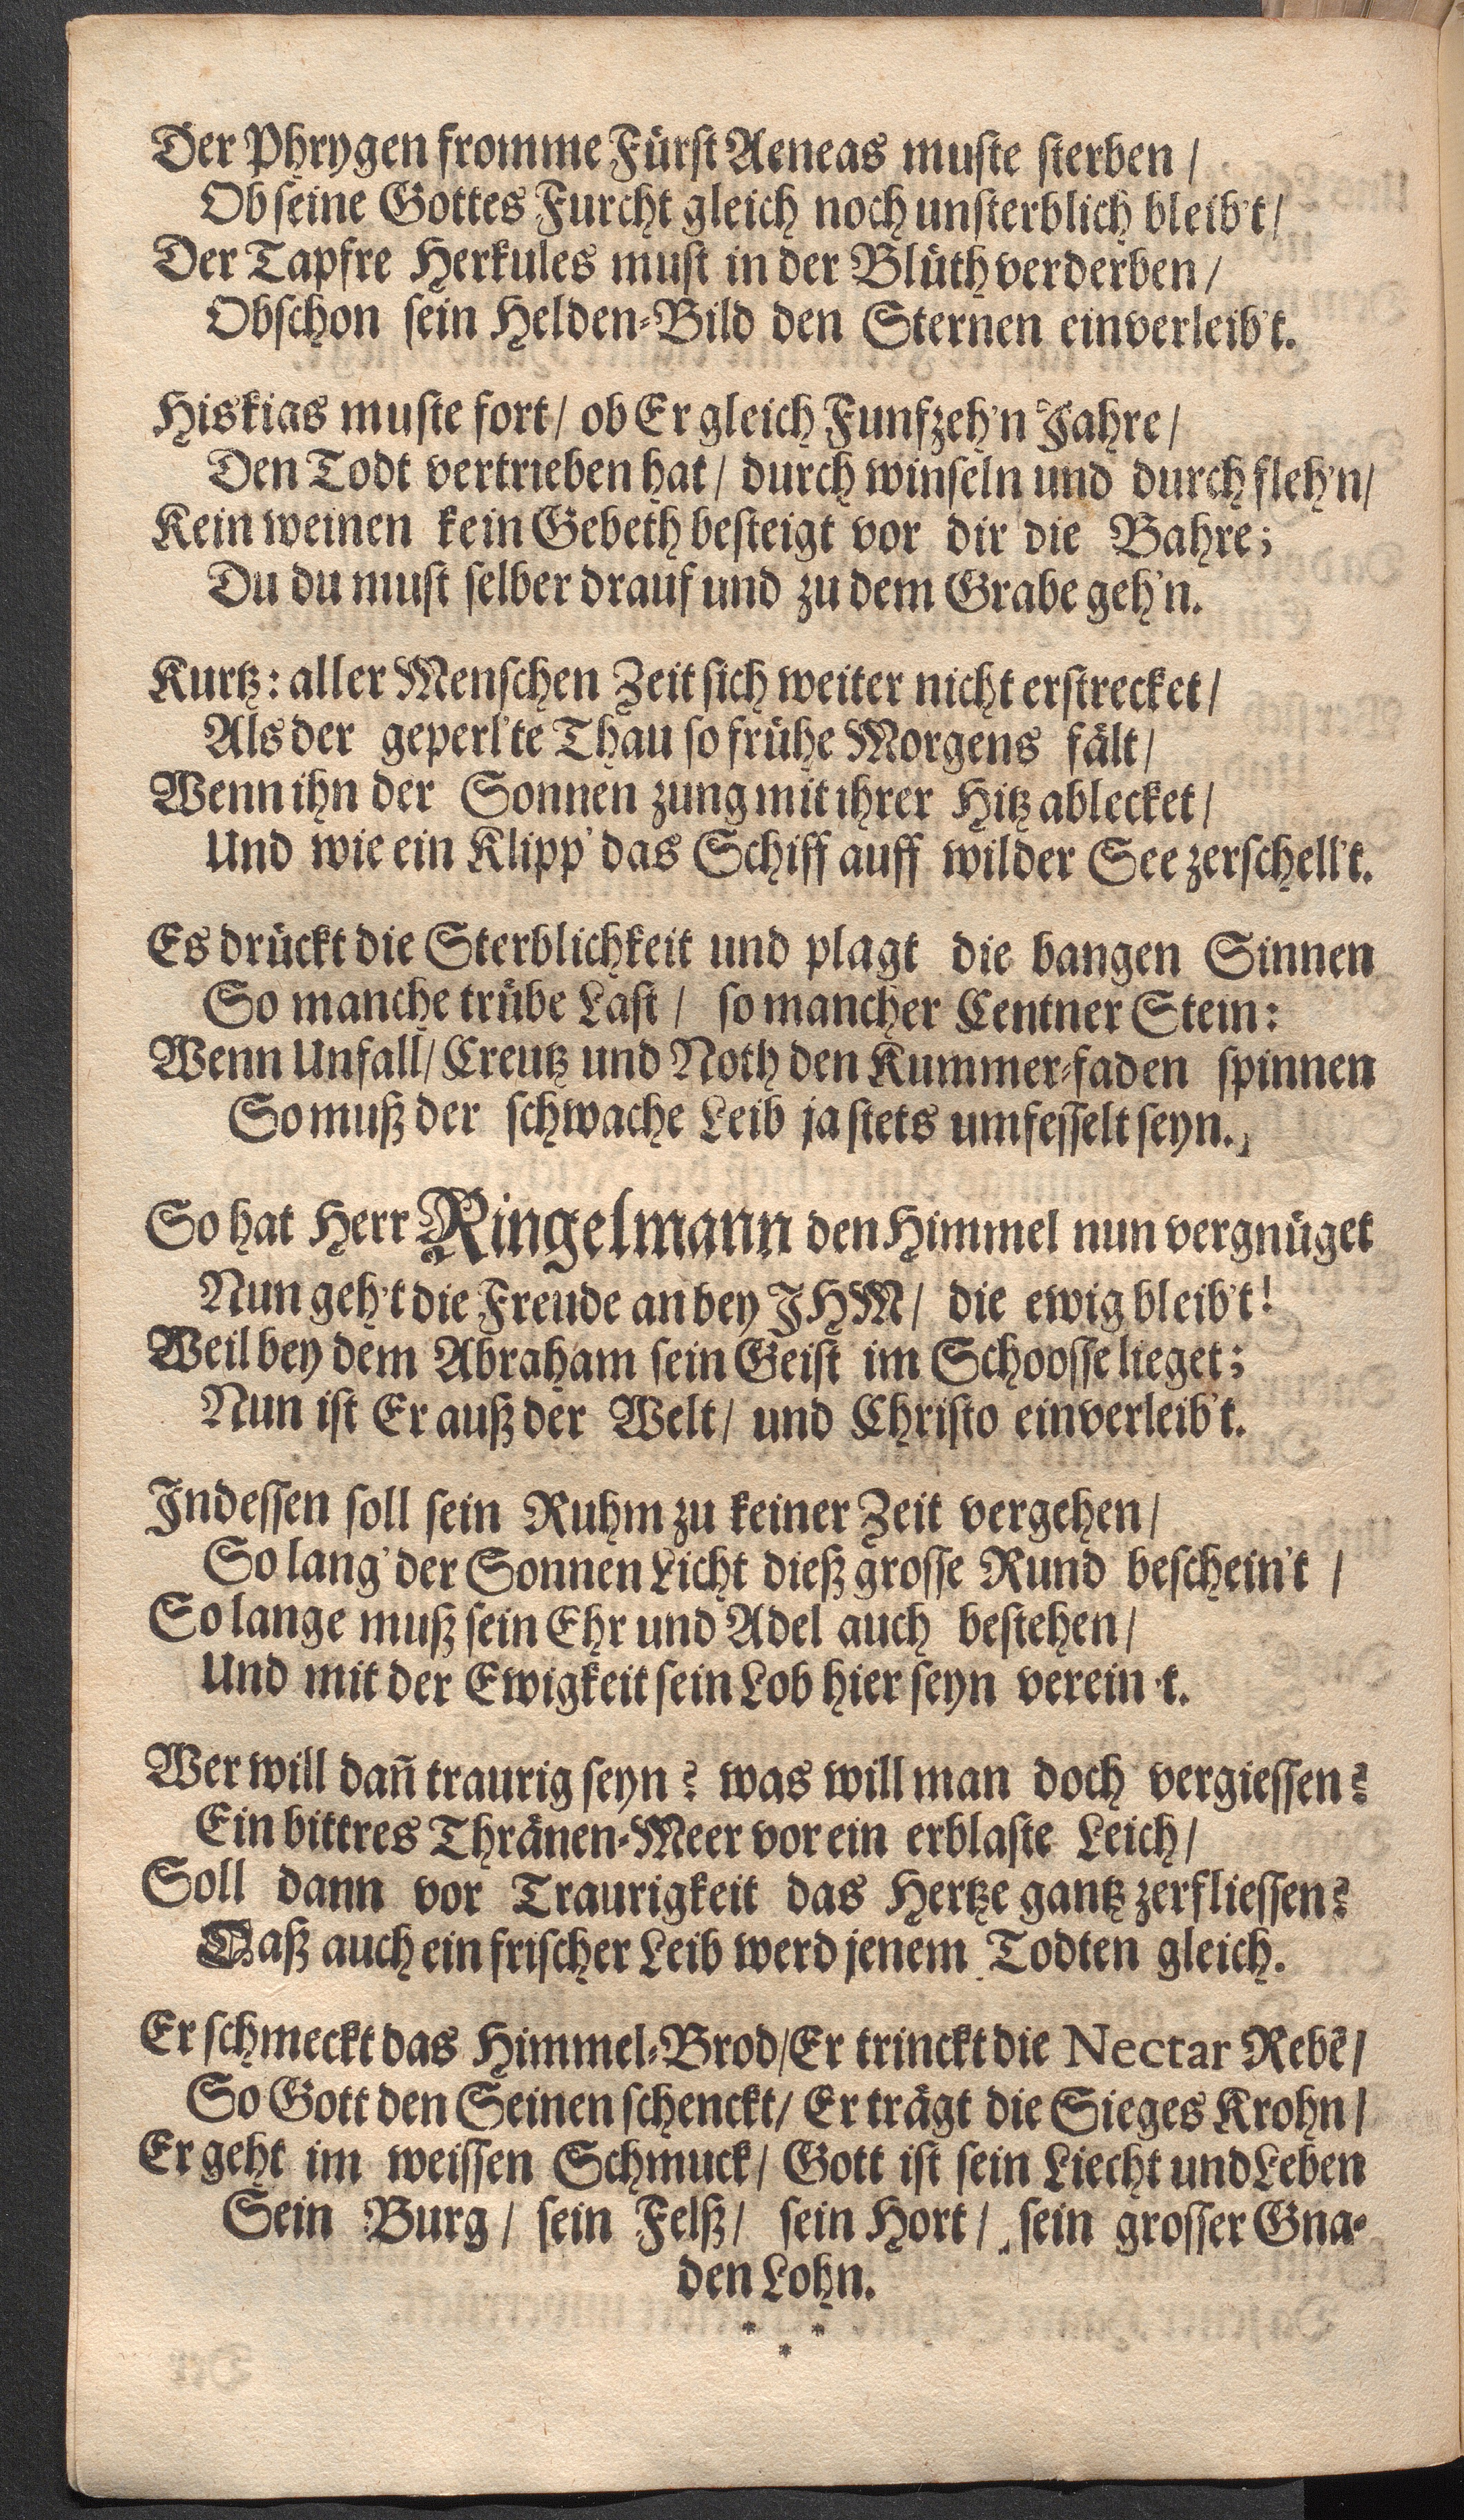 Der Phrygen fromme Fürst Aeneas muste sterben /
Ob seine Gottes Furcht gleich noch unsterblich bleib't /
Der Tapfre Herkules must in der Blüth verderben /
Obschon sein Helden-Bild den Sternen einverleib't.
Hiskias muste fort / ob Er gleich Funfzeh'n Jahre /
Den Todt vertrieben hat / durch winseln und durch fleh'n /
Kein weinen kein Gebeth besteigt vor dir die Bahre;
Du du must selber drauf und zu dem Grabe geh'n.
Kurtz: aller Menschen Zeit sich weiter nicht erstrecket /
Als der geperl'te Thau so frühe Morgens fält /
Wenn ihn der Sonnen zung mit ihrer Hitz ablecket /
Und wie ein Klipp' das Schiff auff wilder See zerschell't.
Es drückt die Sterblichkeit und plagt die bangen Sinnen
So manche trübe Last / so mancher Centner Stein:
Wenn Unfall / Creutz und Noth den Kummer-faden spinnen
So muß der schwache Leib ja stets umfesselt seyn.
So hat Herr Ringelmann den Himmel nun vergnüget
Nun geh't die Freude an bey JHM / die ewig bleib't!
Weil bey dem Abraham sein Geist im Schoosse lieget;
Nun ist Er auß der Welt / und Christo einverleib't.
Jndessen soll sein Ruhm zu keiner Zeit vergehen /
So lang' der Sonnen Licht dieß grosse Rund beschein't /
So lange muß sein Ehr und Adel auch bestehen /
Und mit der Ewigkeit sein Lob hier seyn verein't.
Wer will dañ traurig seyn? was will man doch vergiessen?
Ein bittres Thränen-Meer vor ein erblaste Leich /
Soll dann vor Traurigkeit das Hertze gantz zerfliessen?
Daß auch ein frischer Leib werd jenem Todten gleich.
Er schmeckt das Himmel-Brod / Er trinckt die Nectar Rebē /
So Gott den Seinen schenckt / Er trägt die Sieges Krohn /
Er geht im weissen Schmuck / Gott ist sein Liecht und Leben
Sein Burg / sein Felß / sein Hort / sein grosser Gna-
den Lohn.
* * *